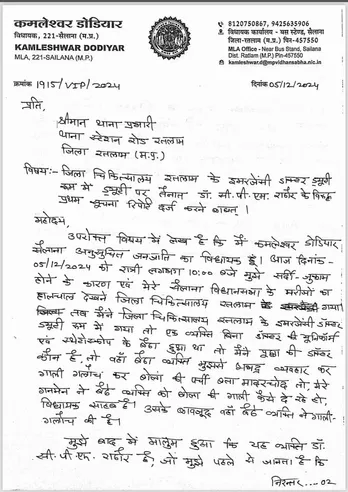 कमलेश्वर डोडियार
विधायक, 221-सैलाना (म.प्र.)
KAMLESHWAR DODIYAR
MLA, 221-SAILANA (M.P.)
8120750867, 9425635906
विधायक कार्यालय - बस स्टेण्ड, सैलाना
जिला-रतलाम (म.प्र.) पिन-457550
MLA Office - Near Bus Stand, Sailana
Dist. Ratlam (M.P.) Pin-457550
kamleshwar.d@mpvidhansabha.nic.in
क्रमांक 1915/VIP/2024
दिनांक 05/12/2024
प्रति,
श्रीमान थाना प्रभारी
थाना स्टेशन रोड रतलाम
जिला रतलाम (म.प्र.)
विषय:- जिला चिकित्सालय रतलाम के इमरजेंसी डॉक्टर ड्यूटी
रूम में ड्यूटी पर तैनात डॉ. सी. पी. एस. राठौर के विरूद्ध
प्रथम सूचना रिपोर्ट दर्ज करने बाबत्।
महोदय,
उपरोक्त विषय में लेख है कि मैं कमलेश्वर डोडियार
सैलाना अनुसूचित जनजाति का विधायक हूं। आज दिनांक-
05/12/2024 को रात्री लगभग 10:00 बजे मुझे सर्दी-जुकाम
होने के कारण एवं मेरे सैलाना विधानसभा के मरीजों का
हालचाल देखने जिला चिकित्सालय रतलाम गया।
जब मैंने जिला चिकित्सालय रतलाम के इमरजेंसी डॉक्टर
ड्यूटी रूम में गया तो एक व्यक्ति बिना डॉक्टर की यूनिफॉर्म
एवं स्टेथोस्कोप के बैठा हुआ था तो मैंने पूछा की डॉक्टर
कौन है, तो वहाँ बैठा व्यक्ति मुझसे अभद्र व्यवहार कर
गाली गलौच कर बोला की पर्ची बना मादरचोद तो, मेरे
गनमेन ने बैठे व्यक्ति को बोला की गाली कैसे दे रहे हो,
विधायक साहब है। उसके बावजूद वहाँ बैठे व्यक्ति ने गाली-
गलौच की है।
मुझे बाद में मालुम हुआ कि यह व्यक्ति डॉ.
सी. पी. एस. राठौर है, जो मुझे पहले से जानता है कि
निरन्तर...02